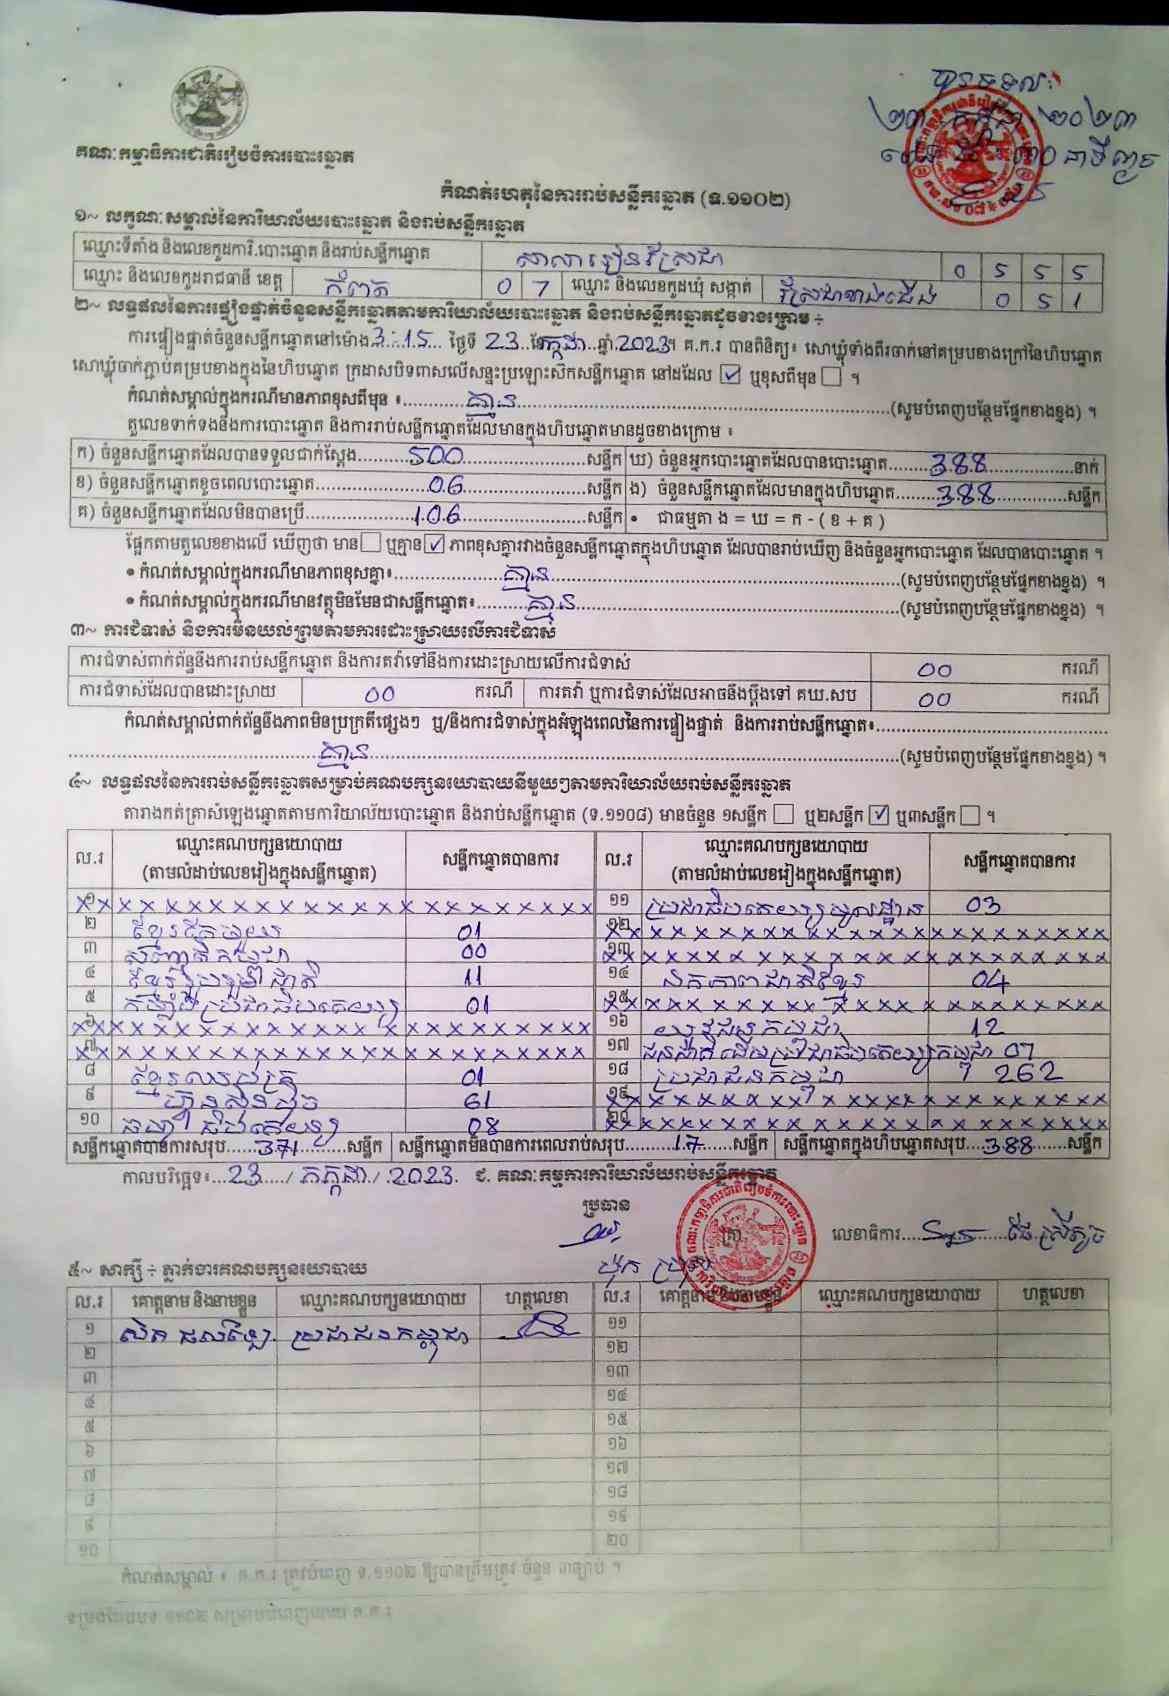 បានទទួល
២៣ កក្កដា ២០២៣
គណៈកម្មាធិការជាតិរៀបចំការបោះឆ្នោត
កំណត់ហេតុនៃការរាប់សន្លឹកឆ្នោត (ទ.១១០២)
១~ លក្ខណៈសម្គាល់នៃការិយាល័យបោះឆ្នោត និងរាប់សន្លឹកឆ្នោត
ឈ្មោះទីតាំង និងលេខកូដការិ.បោះឆ្នោត និងរាប់សន្លឹកឆ្នោត សាលារៀនវត្តស្រែជា 0 5 5 5
ឈ្មោះ និងលេខកូដរាជធានី ខេត្ត កំពត 0 7 ឈ្មោះ និងលេខកូដឃុំ សង្កាត់ ស្រែជាខាងជើង 0 5 1
២~ លទ្ធផលនៃការផ្ទៀងផ្ទាត់ចំនួនសន្លឹកឆ្នោតតាមការិយាល័យបោះឆ្នោត និងរាប់សន្លឹកឆ្នោតដូចខាងក្រោម ÷
ការផ្ទៀងផ្ទាត់ចំនួនសន្លឹកឆ្នោតនៅម៉ោង 3:15 ថ្ងៃទី 23 ខែកក្កដា ឆ្នាំ 2023។ គ.ក.រ បានពិនិត្យ៖ សោឃ្លុំទាំងពីរចាក់នៅគម្របខាងក្រៅនៃហិបឆ្នោត
សោឃ្លុំចាក់ភ្ជាប់គម្របខាងក្នុងនៃហិបឆ្នោត ក្រដាសបិទពាសលើសន្ទះប្រឡោះសិកសន្លឹកឆ្នោត នៅដដែល ☑ ឬខុសពីមុន ☐ ។
កំណត់សម្គាល់ក្នុងករណីមានភាពខុសពីមុន ៖ គ្មាន (សូមបំពេញបន្ថែមផ្នែកខាងខ្នង) ។
តួលេខទាក់ទងនឹងការបោះឆ្នោត និងការរាប់សន្លឹកឆ្នោតដែលមានក្នុងហិបឆ្នោតមានដូចខាងក្រោម ៖
ក) ចំនួនសន្លឹកឆ្នោតដែលបានទទួលជាក់ស្តែង 500 សន្លឹក ឃ) ចំនួនអ្នកបោះឆ្នោតដែលបានបោះឆ្នោត 388 នាក់
ខ) ចំនួនសន្លឹកឆ្នោតខូចពេលបោះឆ្នោត 06 សន្លឹក ង) ចំនួនសន្លឹកឆ្នោតដែលមានក្នុងហិបឆ្នោត 388 សន្លឹក
គ) ចំនួនសន្លឹកឆ្នោតដែលមិនបានប្រើ 106 សន្លឹក • ជាធម្មតា ង = ឃ = ក - ( ខ + គ )
ផ្អែកតាមតួលេខខាងលើ ឃើញថា មាន ☐ ឬគ្មាន ☑ ភាពខុសគ្នារវាងចំនួនសន្លឹកឆ្នោតក្នុងហិបឆ្នោត ដែលបានរាប់ឃើញ និងចំនួនអ្នកបោះឆ្នោត ដែលបានបោះឆ្នោត ។
• កំណត់សម្គាល់ក្នុងករណីមានភាពខុសគ្នា៖ គ្មាន (សូមបំពេញបន្ថែមផ្នែកខាងខ្នង) ។
• កំណត់សម្គាល់ក្នុងករណីមានវត្ថុមិនមែនជាសន្លឹកឆ្នោត៖ គ្មាន (សូមបំពេញបន្ថែមផ្នែកខាងខ្នង) ។
៣~ ការជំទាស់ និងការមិនយល់ព្រមតាមការដោះស្រាយលើការជំទាស់
ការជំទាស់ពាក់ព័ន្ធនឹងការរាប់សន្លឹកឆ្នោត និងការតវ៉ាទៅនឹងការដោះស្រាយលើការជំទាស់ 00 ករណី
ការជំទាស់ដែលបានដោះស្រាយ 00 ករណី ការតវ៉ា ឬការជំទាស់ដែលអាចនឹងប្តឹងទៅ គឃ.សប 00 ករណី
កំណត់សម្គាល់ពាក់ព័ន្ធនឹងភាពមិនប្រក្រតីផ្សេងៗ ឬ/និងការជំទាស់ក្នុងអំឡុងពេលនៃការផ្ទៀងផ្ទាត់ និងការរាប់សន្លឹកឆ្នោត៖
គ្មាន (សូមបំពេញបន្ថែមផ្នែកខាងខ្នង) ។
៤~ លទ្ធផលនៃការរាប់សន្លឹកឆ្នោតសម្រាប់គណបក្សនយោបាយនីមួយៗតាមការិយាល័យរាប់សន្លឹកឆ្នោត
តារាងកត់ត្រាសំឡេងឆ្នោតតាមការិយាល័យបោះឆ្នោត និងរាប់សន្លឹកឆ្នោត (ទ.១១០៨) មានចំនួន ១សន្លឹក ☐ ឬ២សន្លឹក ☑ ឬ៣សន្លឹក ☐ ។
ល.រ ឈ្មោះគណបក្សនយោបាយ (តាមលំដាប់លេខរៀងក្នុងសន្លឹកឆ្នោត) សន្លឹកឆ្នោតបានការ ល.រ ឈ្មោះគណបក្សនយោបាយ (តាមលំដាប់លេខរៀងក្នុងសន្លឹកឆ្នោត) សន្លឹកឆ្នោតបានការ
១ xxxxxxxxxxxx ១១ ប្រជាធិបតេយ្យមូលដ្ឋាន 03
២ ខ្មែរតែមួយ 01 ១២ xxxxxxxxxxxx
៣ សញ្ជាតិកម្ពុជា 00 ១៣ xxxxxxxxxxxx
៤ ខ្មែររួបរួមជាតិ 11 ១៤ ឯកភាពជាតិខ្មែរ 04
៥ កម្លាំងប្រជាធិបតេយ្យ 01 ១៥ xxxxxxxxxxxx
៦ xxxxxxxxxxxx ១៦ យុវជនកម្ពុជា 12
៧ xxxxxxxxxxxx ១៧ ជនជាតិដើមប្រជាធិបតេយ្យកម្ពុជា 07
៨ ខ្មែរឈប់ក្រ 01 ១៨ ប្រជាជនកម្ពុជា 262
៩ ហ្វ៊ុនស៊ិនប៉ិច 61 ១៩ xxxxxxxxxxxx
១០ ធម្មាធិបតេយ្យ 08 ២០ xxxxxxxxxxxx
សន្លឹកឆ្នោតបានការសរុប 371 សន្លឹក សន្លឹកឆ្នោតមិនបានការពេលរាប់សរុប 17 សន្លឹក សន្លឹកឆ្នោតក្នុងហិបឆ្នោតសរុប 388 សន្លឹក
កាលបរិច្ឆេទ៖ 23 / កក្កដា / 2023. ជ. គណៈកម្មការការិយាល័យរាប់សន្លឹកឆ្នោត
ប្រធាន
ត្រា លេខាធិការ
៥~ សាក្សី ÷ ភ្នាក់ងារគណបក្សនយោបាយ
ល.រ គោត្តនាម និងនាមខ្លួន ឈ្មោះគណបក្សនយោបាយ ហត្ថលេខា ល.រ គោត្តនាម និងនាមខ្លួន ឈ្មោះគណបក្សនយោបាយ ហត្ថលេខា
១ ប្រជាជនកម្ពុជា ១១
២ ១២
៣ ១៣
៤ ១៤
៥ ១៥
៦ ១៦
៧ ១៧
៨ ១៨
៩ ១៩
១០ ២០
កំណត់សម្គាល់ ៖ គ.ក.រ ត្រូវបំពេញ ទ.១១០២ ឱ្យបានត្រឹមត្រូវ ចំនួន ៣ច្បាប់ ។
ទម្រង់បែបបទ ១១០២ សម្រាប់បំពេញដោយ គ.ក.រ